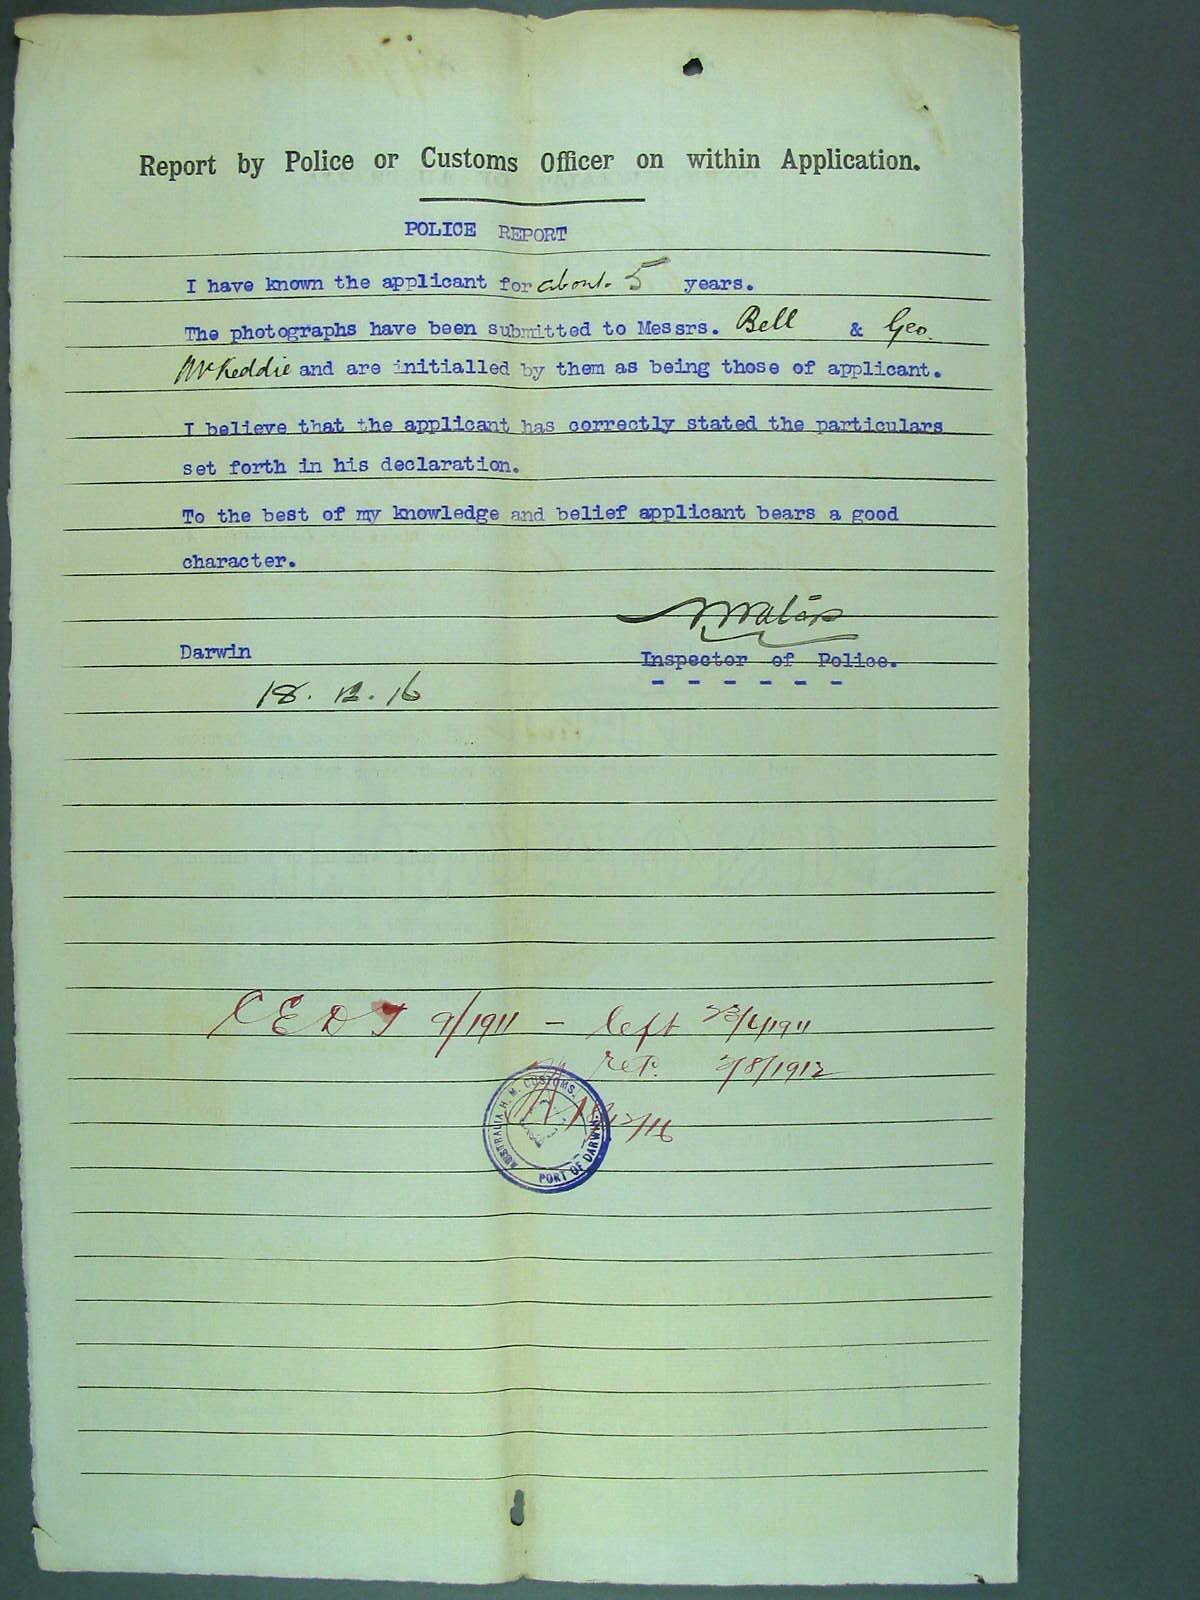 Report by Police or Customs Officer on within Application.
POLICE REPORT
I have known the applicant for about 5 years.
The photographs have been submitted to Messrs. Bell & Geo.
McKeddie and are initialled by them as being those of applicant.
I believe that the applicant has correctly stated the particulars
set forth in his declaration.
To the best of my knowledge and belief applicant bears a good
character.
Darwin
Inspector of Police.
- - - - - -
18. 12. 16
CEDT 9/1911 - left 23/4/1911
ret. 2/8/1912
18/12/16
AUSTRALIA H. M. CUSTOMS.
PORT OF DARWIN